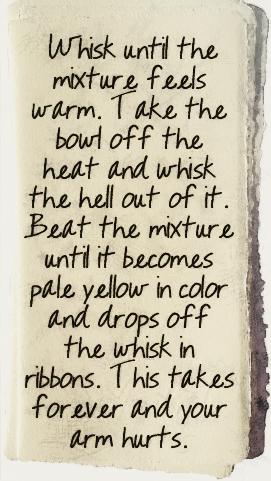 Whisk until the
mixture feels
warm. Take the
bowl off the
heat and whisk
the hell out of it.
Beat the mixture
until it becomes
pale yellow in color
and drops off
the whisk in
ribbons. This takes
forever and your
arm hurts.